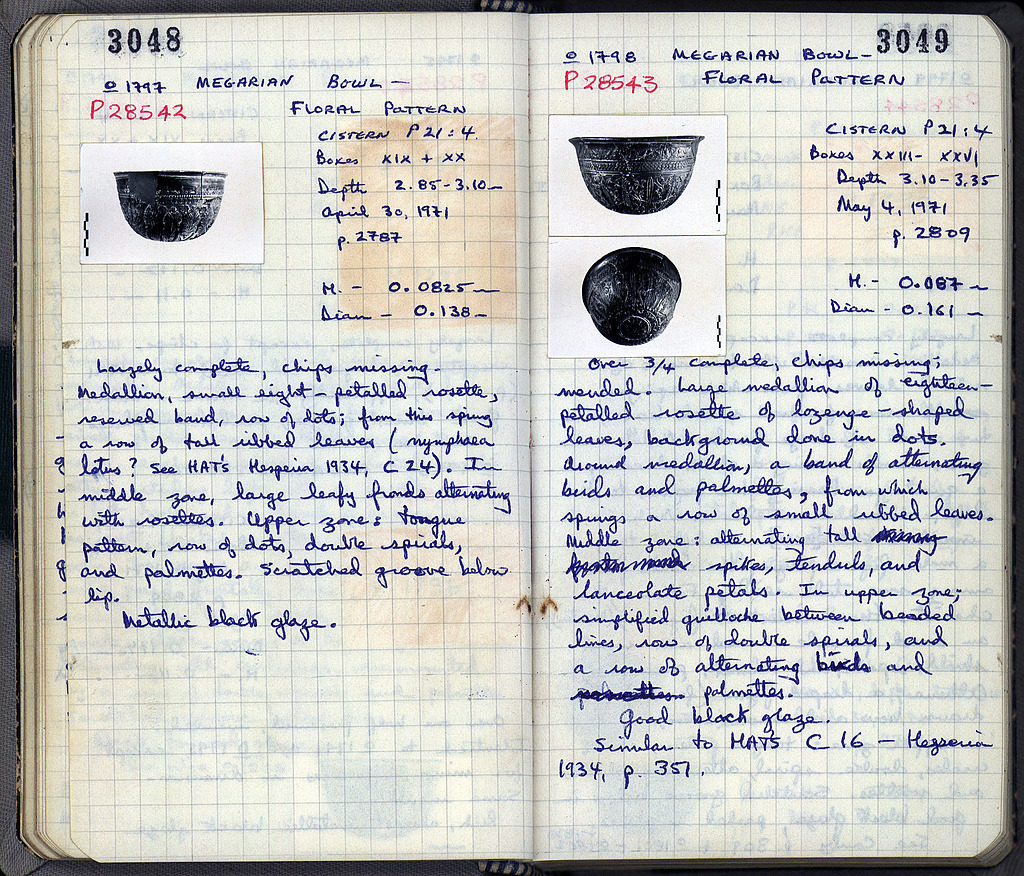 3048
o 1797 MEGARIAN BOWL —
P 28542 FLORAL PATTERN
CISTERN P 21 : 4
Boxes XIX + XX
Depth 2.85 - 3.10 m
April 30, 1971
p. 2787
H. - 0.0825 m
Diam - 0.138 m
Largely complete, chips missing.
Medallion, small eight-petalled rosette,
reserved band, row of dots; from this spring
a row of tall ribbed leaves (nymphaea
lotus? See HAT's Hesperia 1934, C 24). In
middle zone, large leafy fronds alternating
with rosettes. Upper zone: tongue
pattern, row of dots, double spirals,
and palmettes. Scratched groove below
lip.
Metallic black glaze.
3049
o 1798 MEGARIAN BOWL —
P 28543 FLORAL PATTERN
CISTERN P 21 : 4
Boxes XXIII - XXVI
Depth 3.10 - 3.35
May 4, 1971
p. 2809
H. - 0.087 m
Diam - 0.161 m
Over 3/4 complete, chips missing;
mended. Large medallion of eighteen-
petalled rosette of lozenge-shaped
leaves, background done in dots.
Around medallion, a band of alternating
birds and palmettes, from which
springs a row of small ribbed leaves.
Middle zone: alternating tall
spikes, tendrils, and
lanceolate petals. In upper zone;
simplified guilloche between beaded
lines, row of double spirals, and
a row of alternating birds and
palmettes palmettes.
Good black glaze.
Similar to HAT'S C 16 — Hesperia
1934, p. 351.